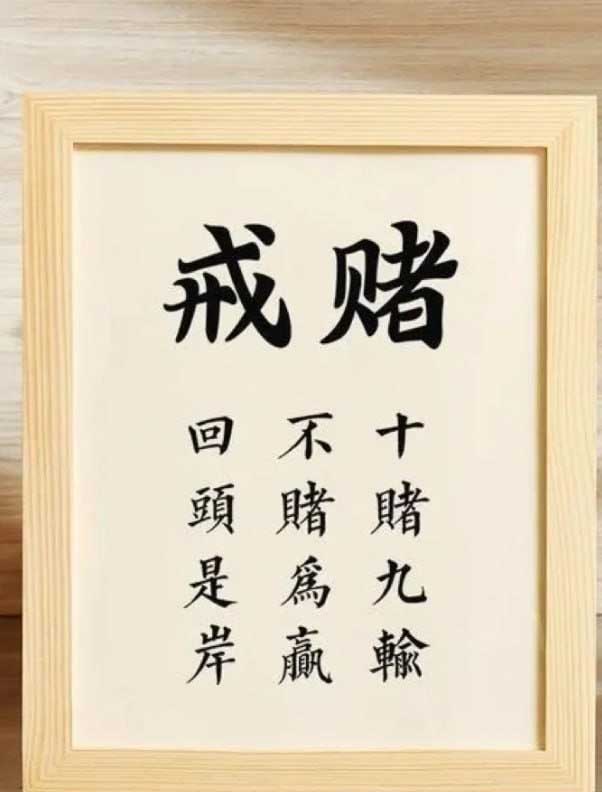 戒赌
十賭九輸
不賭爲贏
回頭是岸